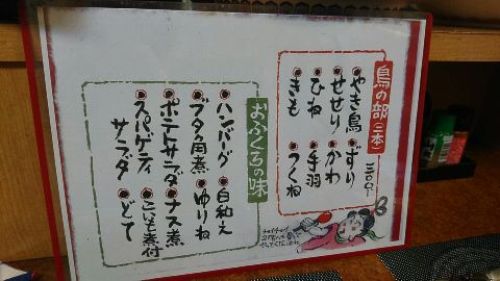 鳥の部(二本)
三〇〇
やき鳥
ずり
せせり
かわ
ひね
手羽
きも
つくね
おふくろの味
ハンバーグ
白和え
ブタ角煮
ゆりね
ポテトサラダ
ナス煮
スパゲティサラダ
こいも煮付
どて